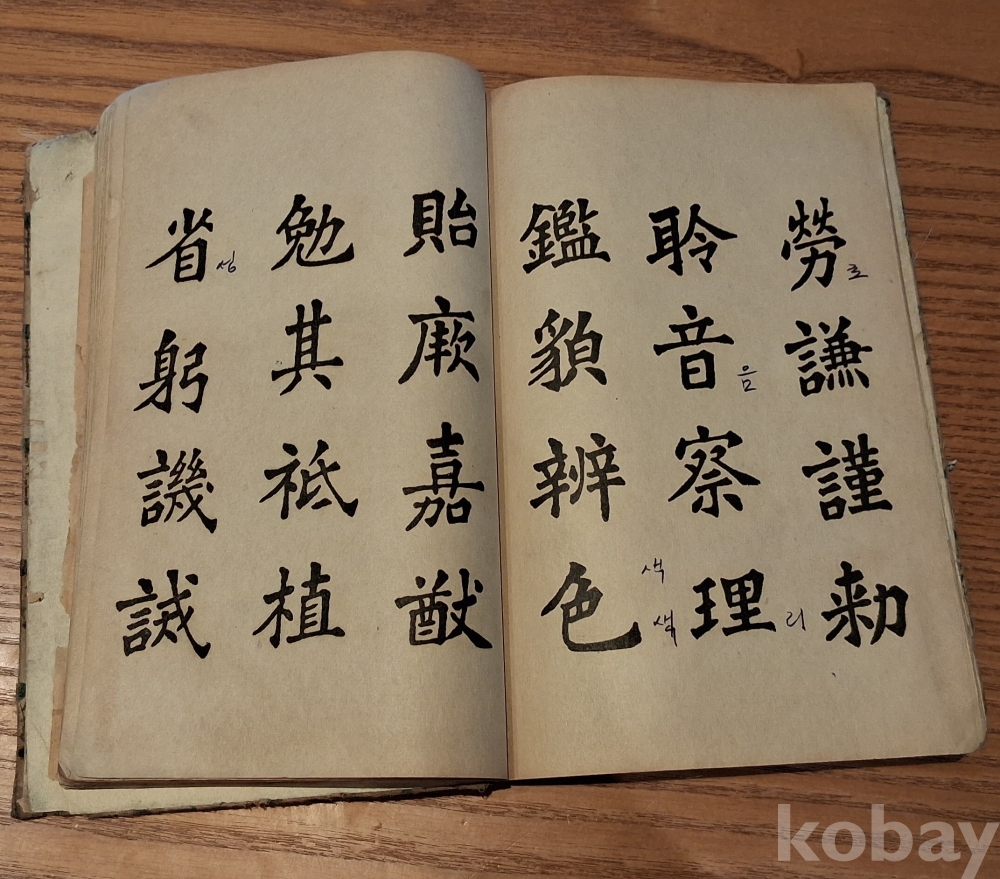 勞謙謹勑
로
聆音察理
음
리
鑑貌辨色
색
색
貽厥嘉猷
勉其祗植
省躬譏誡
성
kobay